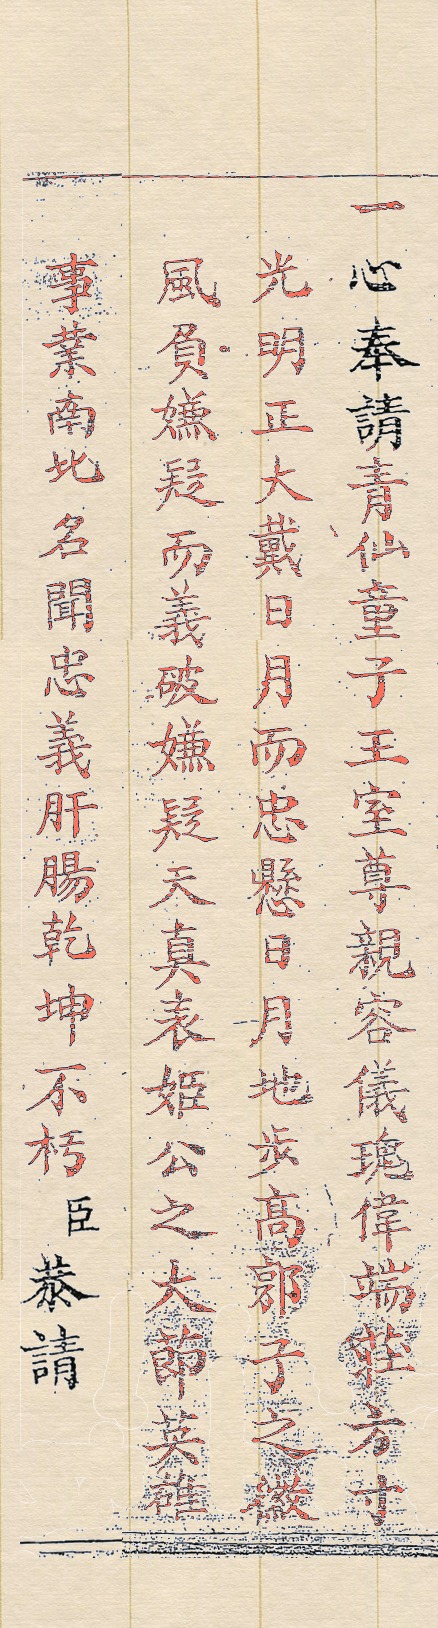 一心奉請青仙童子王室尊親容儀瑰偉端莊方寸
光明正大戴日月而忠懸日月地步高郭子之徽
風負嫌疑而義破嫌疑天真表姬公之大節英雄
事業南北名聞忠義肝腸乾坤不朽臣恭請